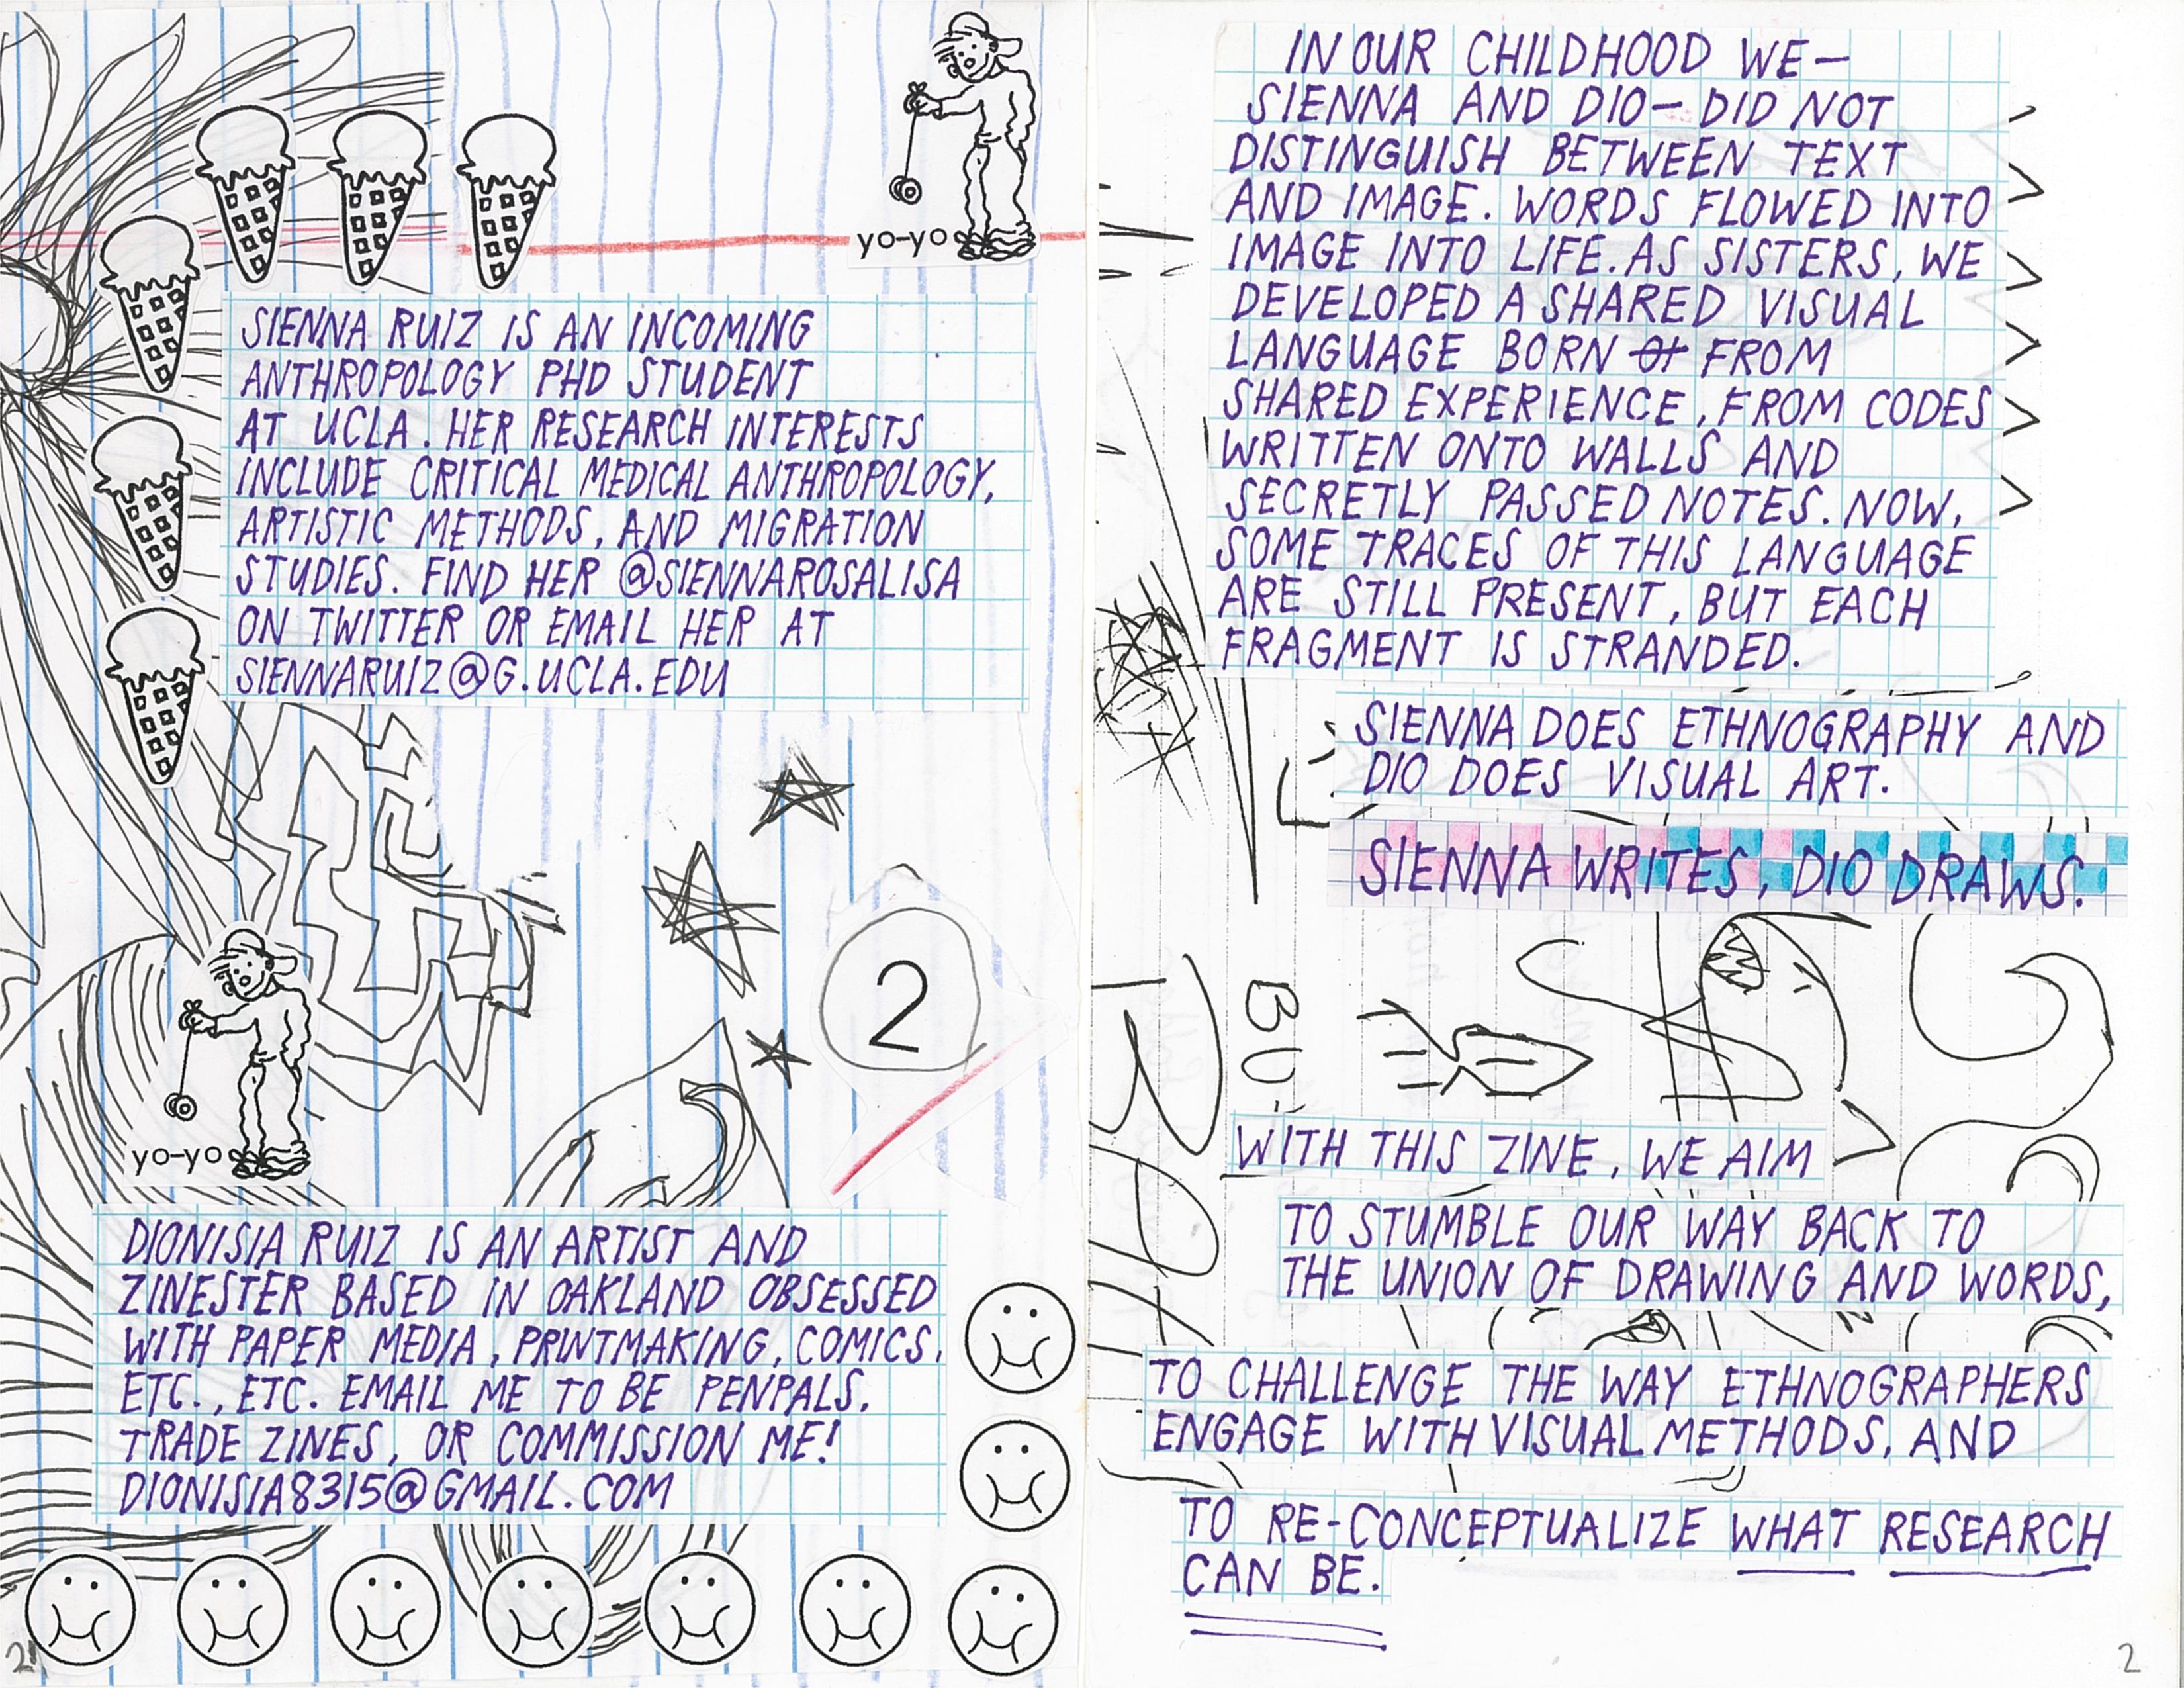 yo-yo
SIENNA RUIZ IS AN INCOMING
ANTHROPOLOGY PHD STUDENT
AT UCLA. HER RESEARCH INTERESTS
INCLUDE CRITICAL MEDICAL ANTHROPOLOGY,
ARTISTIC METHODS, AND MIGRATION
STUDIES. FIND HER @SIENNAROSALISA
ON TWITTER OR EMAIL HER AT
SIENNARUIZ@G.UCLA.EDU
2
yo-yo
DIONISIA RUIZ IS AN ARTIST AND
ZINESTER BASED IN OAKLAND OBSESSED
WITH PAPER MEDIA, PRINTMAKING, COMICS,
ETC., ETC. EMAIL ME TO BE PENPALS,
TRADE ZINES, OR COMMISSION ME!
DIONISIA8315@GMAIL.COM
IN OUR CHILDHOOD WE—
SIENNA AND DIO—DID NOT
DISTINGUISH BETWEEN TEXT
AND IMAGE. WORDS FLOWED INTO
IMAGE INTO LIFE. AS SISTERS, WE
DEVELOPED A SHARED VISUAL
LANGUAGE BORN FROM
SHARED EXPERIENCE, FROM CODES
WRITTEN ONTO WALLS AND
SECRETLY PASSED NOTES. NOW,
SOME TRACES OF THIS LANGUAGE
ARE STILL PRESENT, BUT EACH
FRAGMENT IS STRANDED.
SIENNA DOES ETHNOGRAPHY AND
DIO DOES VISUAL ART.
SIENNA WRITES, DIO DRAWS.
BU
WITH THIS ZINE, WE AIM
TO STUMBLE OUR WAY BACK TO
THE UNION OF DRAWING AND WORDS,
TO CHALLENGE THE WAY ETHNOGRAPHERS
ENGAGE WITH VISUAL METHODS, AND
TO RE-CONCEPTUALIZE WHAT RESEARCH
CAN BE.
2